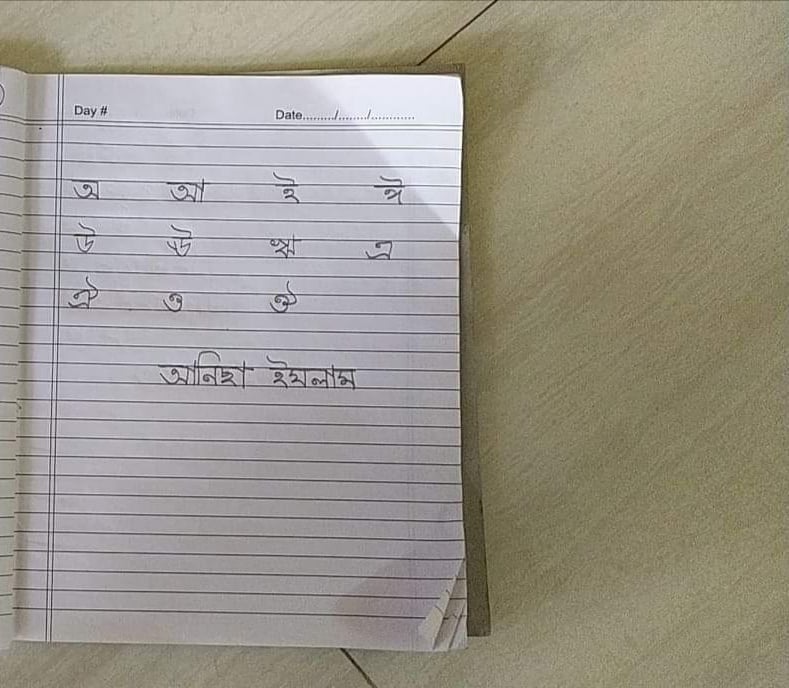 Day # Date........./......../............
অ আ ই ঈ
উ ঊ ঋ এ
ঐ ও ঔ
আনিহা ইমলাম